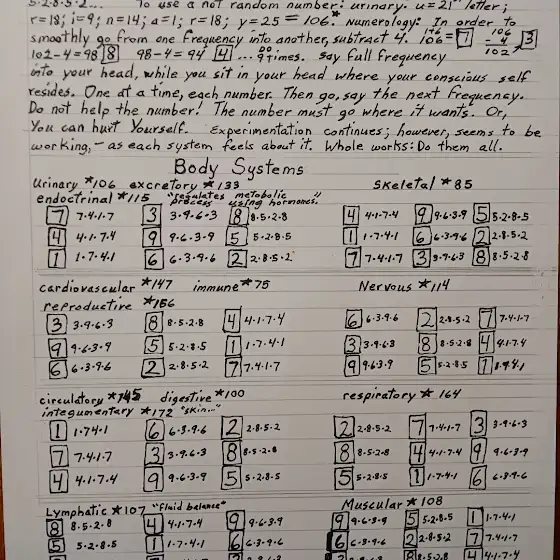 To use a not random number: urinary. u=21st letter;
r=18; i=9; n=14; a=1; r=18; y=25 = 106.* numerology: In order to
smoothly go from one frequency into another, subtract 4. 106= 7 106 -4 102 3
102-4=98 8 98-4=94 4 ... Do 9 times. Say full frequency
into your head, while you sit in your head where your conscious self
resides. One at a time, each number. Then go, say the next frequency.
Do not help the number! The number must go where it wants. Or,
You can hurt Yourself. Experimentation continues; however, seems to be
working, - as each system feels about it. Whole works: Do them all.
Body Systems
Urinary *106 excretory *133 Skeletal *85
endoctrinal *115 "regulates metabolic process using hormones."
7 7.4.1.7 3 3.9.6.3 8 8.5.2.8 4 4.1.7.4 9 9.6.3.9 5 5.2.8.5
4 4.1.7.4 9 9.6.3.9 5 5.2.8.5 1 1.7.4.1 6 6.3.9.6 2 2.8.5.2
1 1.7.4.1 6 6.3.9.6 2 2.8.5.2 7 7.4.1.7 3 3.9.6.3 8 8.5.2.8
cardiovascular *147 immune *75 Nervous *114
reproductive *156
3 3.9.6.3 8 8.5.2.8 4 4.1.7.4 6 6.3.9.6 2 2.8.5.2 7 7.4.1.7
9 9.6.3.9 5 5.2.8.5 1 1.7.4.1 3 3.9.6.3 8 8.5.2.8 4 4.1.7.4
6 6.3.9.6 2 2.8.5.2 7 7.4.1.7 9 9.6.3.9 5 5.2.8.5 1 1.7.4.1
circulatory *145 digestive *100 respiratory * 164
integumentary *172 "skin..."
1 1.7.4.1 6 6.3.9.6 2 2.8.5.2 2 2.8.5.2 7 7.4.1.7 3 3.9.6.3
7 7.4.1.7 3 3.9.6.3 8 8.5.2.8 8 8.5.2.8 4 4.1.7.4 9 9.6.3.9
4 4.1.7.4 9 9.6.3.9 5 5.2.8.5 5 5.2.8.5 1 1.7.4.1 6 6.3.9.6
Lymphatic *107 "fluid balance" Muscular *108
8 8.5.2.8 4 4.1.7.4 9 9.6.3.9 9 9.6.3.9 5 5.2.8.5 1 1.7.4.1
5 5.2.8.5 1 1.7.4.1 6 6.3.9.6 6 6.3.9.6 2 2.8.5.2 7 7.4.1.7
8 8.5.2.8 4 4.1.7.4